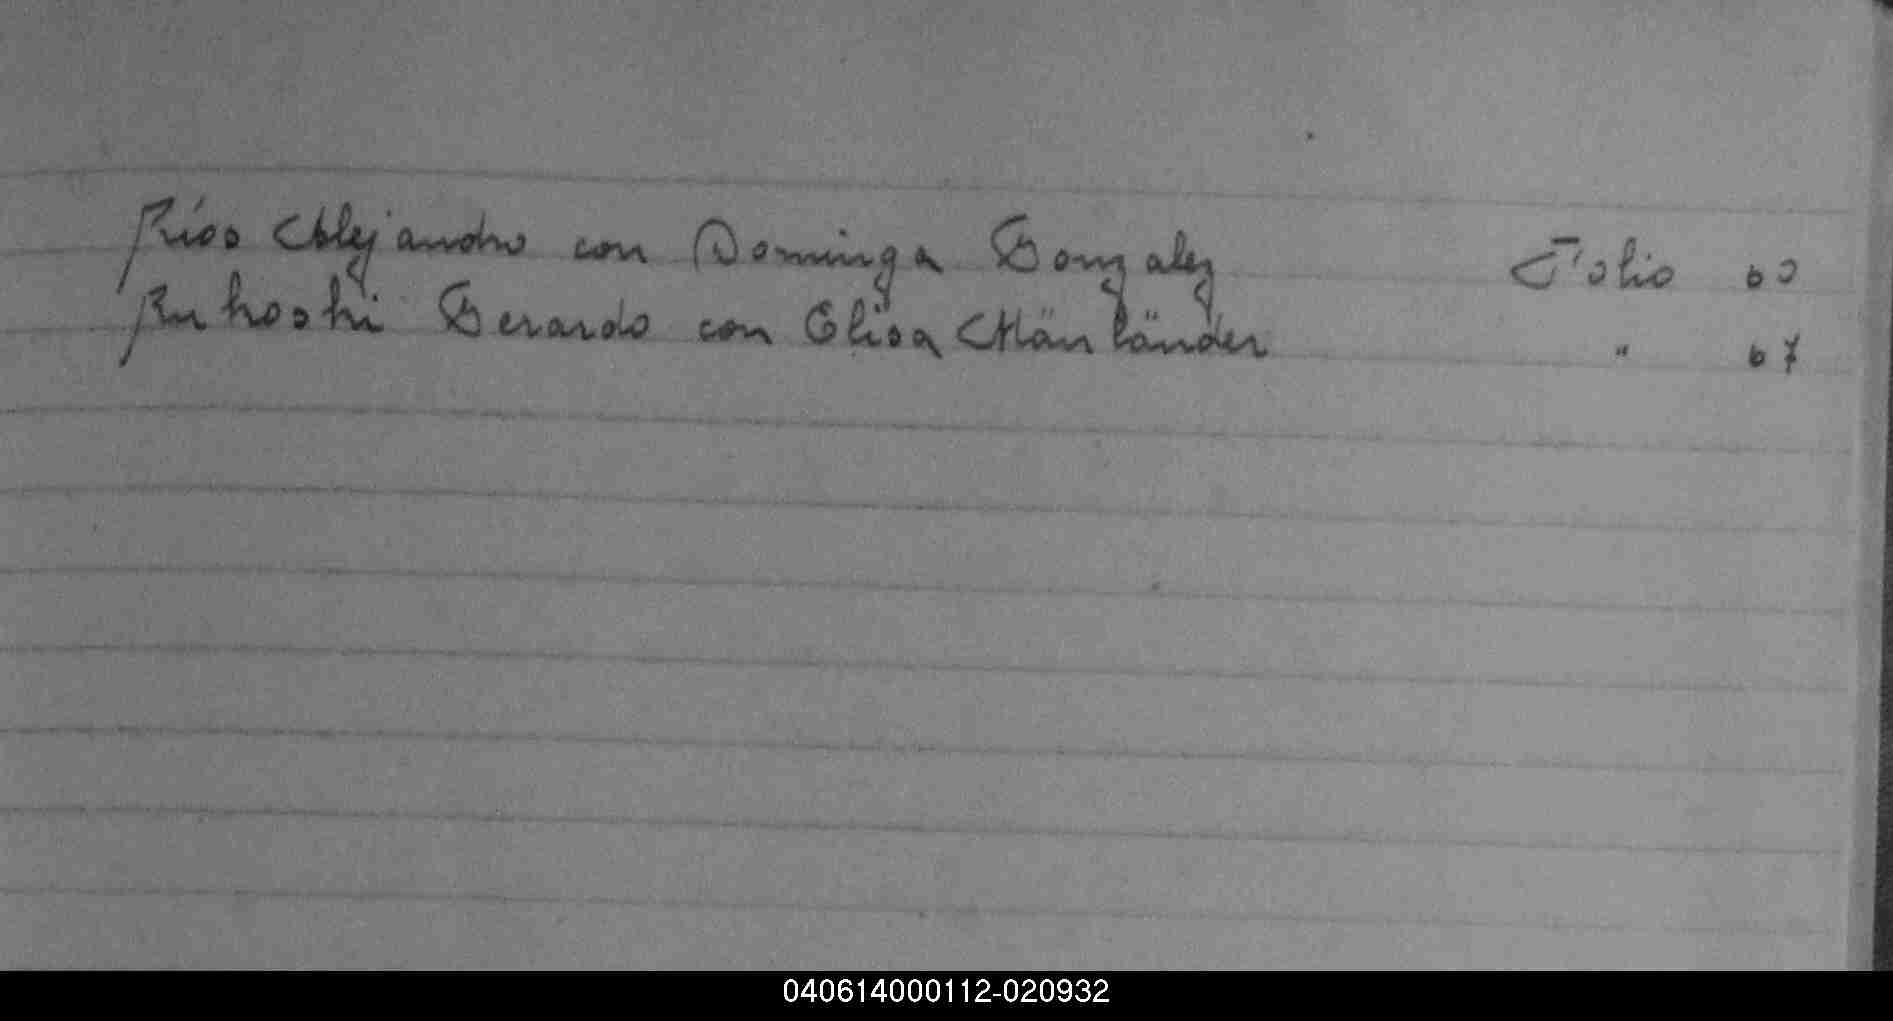 Ríos Alejandro con Dominga Gonzalez Folio 60
Gerardo con Elisa " 67
040614000112-020932